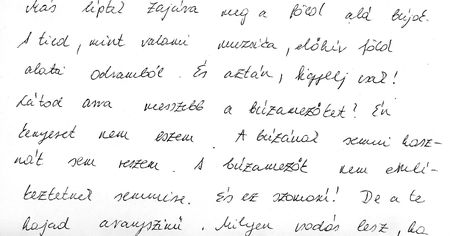 más léptei zajára meg a föld alá bújok.
A tied, mint valami muzsika, előhív föld
alatti odramból. És aztán, figyelj csak!
Látod arra messzebb a búzamezőket? Én
kenyeret nem eszem. A búzának semmi hasz-
nát sem veszem. A búzamezők nem emlé-
keztetnek semmire. És ez szomorú! De a te
hajad aranyszínű. Milyen csodás lesz, ha